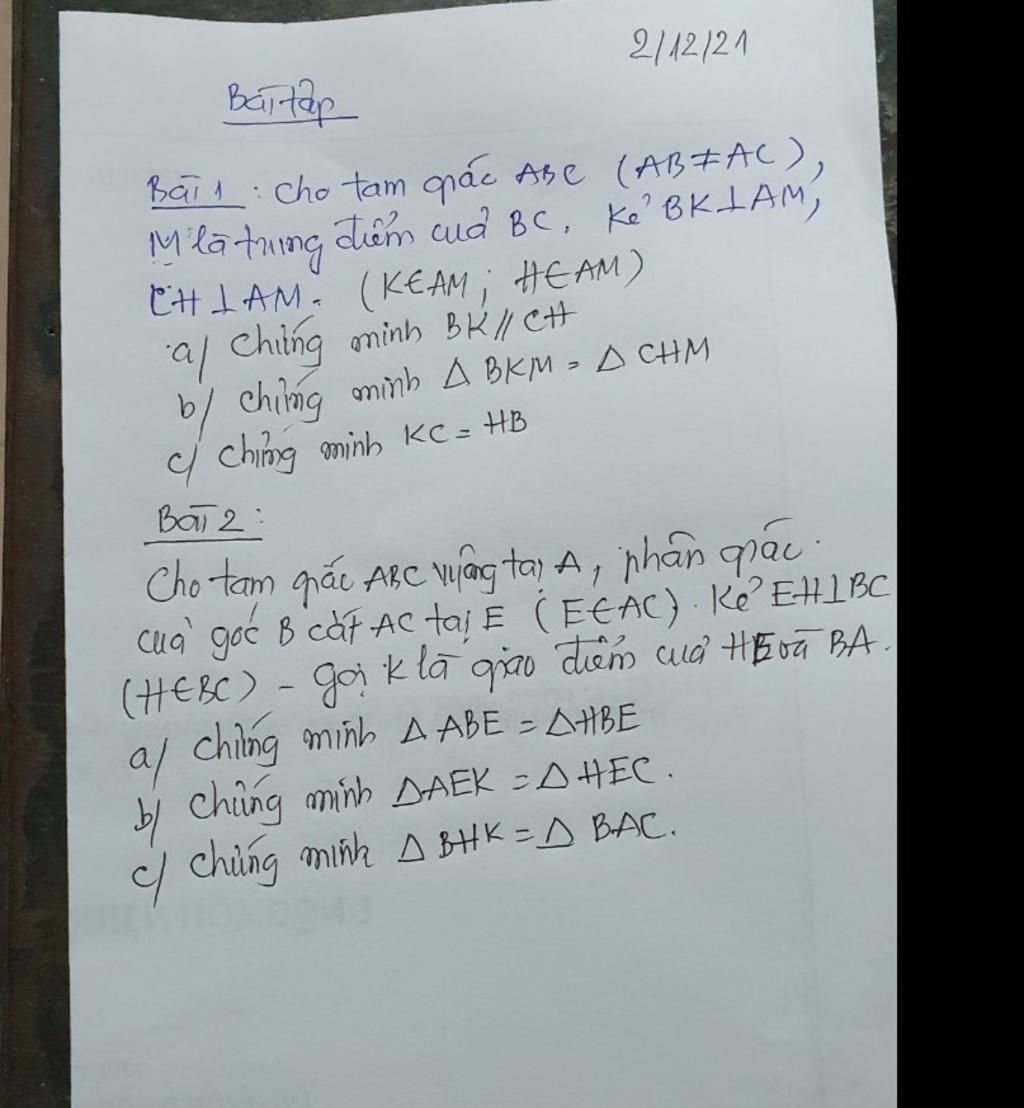 2/12/21
Bài tập
Bài 1 : Cho tam giác ABC (AB≠AC),
M là trung điểm của BC. Kẻ BK⊥AM,
CH⊥AM. (K∈AM ; H∈AM)
a/ Chứng minh BK // CH
b/ Chứng minh Δ BKM = Δ CHM
c/ Chứng minh KC = HB
Bài 2 :
Cho tam giác ABC vuông tại A, phân giác
của góc B cắt AC tại E (E∈AC). Kẻ EH⊥BC
(H∈BC) - gọi K là giao điểm của HE và BA.
a/ Chứng minh Δ ABE = ΔHBE
b/ Chứng minh ΔAEK = Δ HEC.
c/ Chứng minh Δ BHK = Δ BAC.